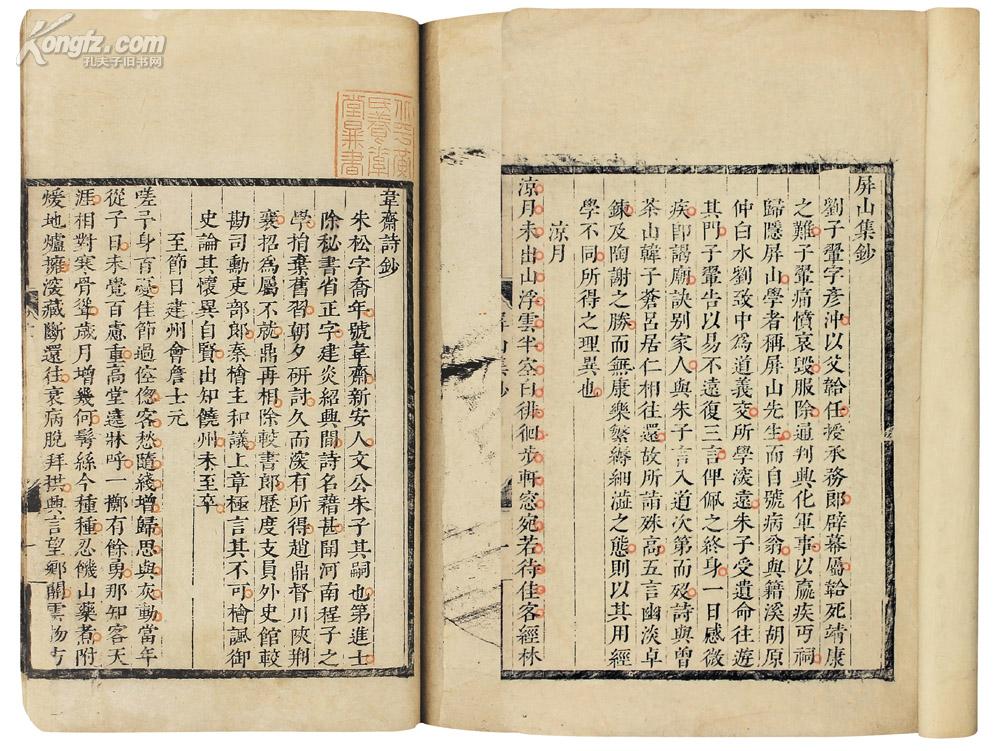 屏山集鈔
劉子翬字彥沖以父韐任授承務郎辟幕屬韐死靖康
之難子翬痛憤哀毀服除通判興化軍事以羸疾丐祠
歸隱屏山學者稱屏山先生而自號病翁與籍溪胡原
仲白水劉致中為道義交所學深遠朱子受遺命往遊
其門子翬告以易不遠復三言俾佩之終身一日感微
疾即謁廟訣别家人與朱子言入道次第而歿詩與曾
茶山韓子蒼呂居仁相往還故所詣殊高五言幽淡卓
鍊及陶謝之勝而無康樂繁縟細澁之態則以其用經
學不同所得之理異也
涼月
涼月未出山浮雲半空白徘徊步軒窓宛若待佳客經林
屏山集鈔
韋齋詩鈔
朱松字喬年號韋齋新安人文公朱子其嗣也第進士
除秘書省正字建炎紹興間詩名藉甚聞河南程子之
學捐棄舊習朝夕研討久而深有所得趙鼎督川陝荆
襄招為屬不就鼎再相除較書郎歷度支員外史館較
勘司勳吏部郎秦檜主和議上章極言其不可檜諷御
史論其懷異自賢出知饒州未至卒
至節日建州會詹士元
嗟予身百憂佳節過倥傯客愁隨綫增歸思與灰動當年
從子日未覺百慮重高堂遶牀呼一擲有餘勇那知客天
涯相對寒骨聳歲月增幾何鬢絲今種種忍饑山藥煮附
煖地爐擁深藏斷還往衰病脫拜拱興言望鄉關雲海方
Kongfz.com
孔夫子旧书网